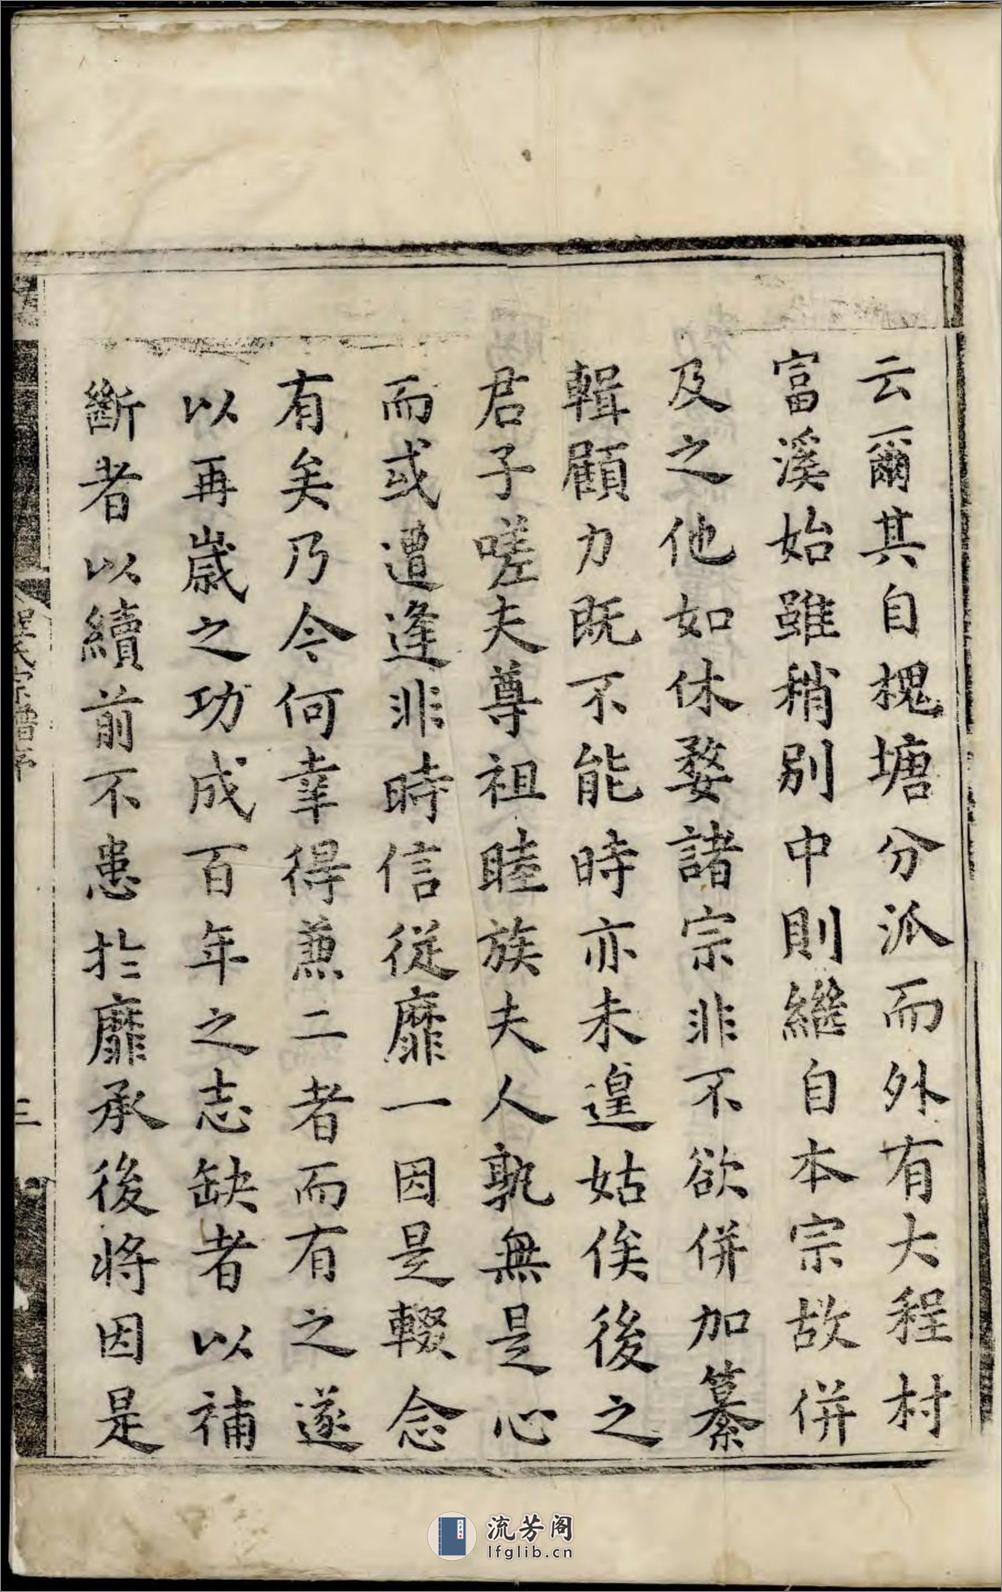 云爾其自槐塘分派而外有大程村
富溪始雖稍別中則繼自本宗故併
及之他如休婺諸宗非不欲併加纂
輯顧力既不能時亦未遑姑俟後之
君子嗟夫尊祖睦族夫人孰無是心
而或遭逢非時信從靡一因是輟念
有矣乃今何幸得兼二者而有之遂
以再歲之功成百年之志缺者以補
斷者以續前不患於靡承後將因是
程氏宗譜序
三
流芳阁
lfglib.cn